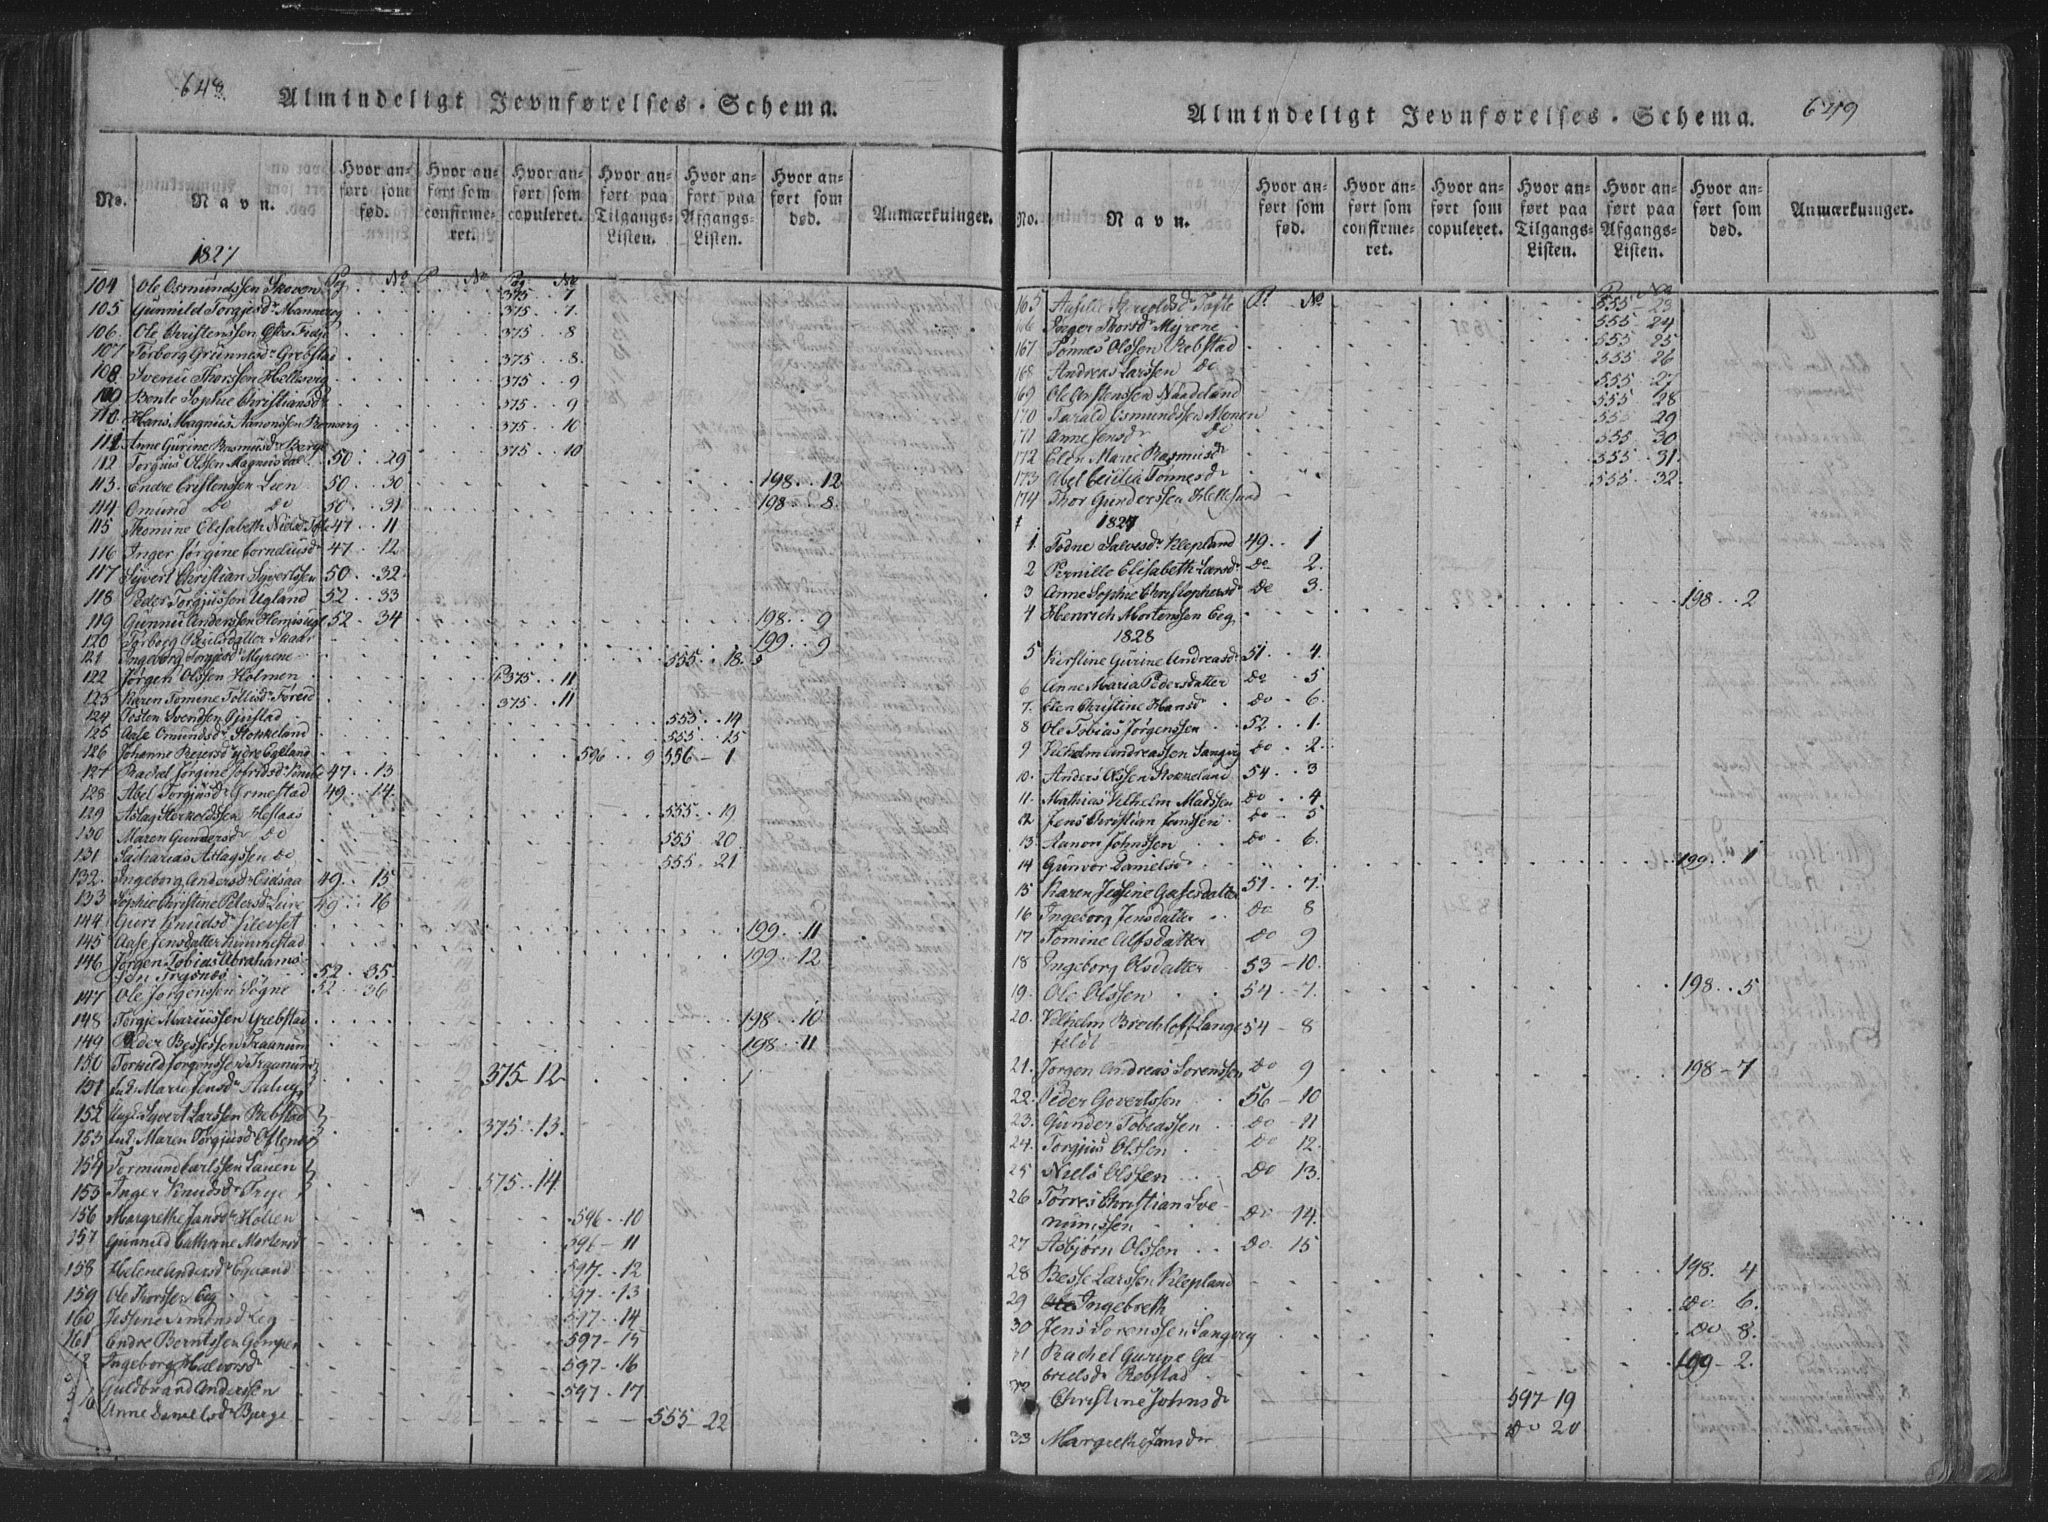 648.
Almindeligt Jevnførelses-Schema.
No.
Navn.
Hvor anført som fød.
Hvor anført som confirmeret.
Hvor anført som copuleret.
Hvor anført paa Tilgangs-Listen.
Hvor anført paa Afgangs-Listen.
Hvor anført som død.
Anmærkninger.
1827
Pg. No P No Pag No
104 Ole Osmundssen Skoven 375 7
105 Gunnild Torgjesdr 375 7.
106 Ole Christenssen 375 8
107 Torborg Grünnesdr Grebstad 375 8.
108 Svenu Thorssen Hellesvig 375 9
109 Bente Sophie Christiansdr 375 9
110 Hans Magnus Aanonssen 375 10
111 Anne Gurine Rasmusdr Berge 375 10
112 Torgius Olssen Magnusdal 50 29
113. Endre Cristenssen Leen 50 30 198 12
114 Omund Do Do 50 31 198 8.
115 Thomine Elisabeth Nielsdr 47 11
116 Inger Jørgine Corneliusdr 47 12
117 Syvert Christian Syvertssen 50 32
118 Peder Torgjussen Ugland 52 33
119 Gunnu Anderssen 52 34 198 9
120 Torborg 199 9
121 Ingeborg Torgjesdr Myrene 555 18
122 Jørgen Olssen Holmen P 375 11
123 Karen Tomine Tollisdr 375 11
124 Josten Svendsen 555 14
125 Aase Omundsdr Stokkeland 555 15
126 Johanne Reiersdr ydre Egeland 596 9 556 - 1
127 Rachel Jørgine 47 13
128 Abel Torgjusdr Grmestad 49 14.
129 Aslag Herkoldssen Hestaas 555 19
130 Maren Gundersdr Do 555 20.
131 Sacharias Attagssen Do 555 21
132. Ingeborg Andersdr Eidsaa 49 15
133 Sophie Christine Petersdr 49 16
144 Guri Knudsdr Klevset 199 11
145 Aase Jensdatter Rimmestad 199 12
146 Jørgen Tobias Abrahams-
søn Trysnæs 52 35.
147 Ole Jørgenssen Søgne 52 36
148 Torgje Mariussen Grebstad 198 10
149 Peder Bessessen Traanum 198 11
150 Torkild Jørgenssen Traanum
151 Marie Jensdr 375 - 12
152 Syvert Larssen Rebstad
153 Maren Torgjusdr 375 13.
154 Tormund Carlssen Lauen
153 Inger Knudsdr Trye 575 14.
156 Margrethe Jansdr Holten 596 10
157 Gunnild Cathrine Mortensd 396 - 11
158 Helene Andersdr Egeland 597 12
159 Ole Thorssen Eeg 597 13
160 Jessine Simonsd Eeg 597 - 14
161 Endre Berntssen 597 - 15
Ingeborg Halvorsdr 597 - 16
Guldbrand Anderssen 597 - 17
Anne Danielsdr Berge 555 - 22

Almindeligt Jevnførelses-Schema.
649
No.
Navn.
Hvor anført som fød.
Hvor anført som confirmeret.
Hvor anført som copuleret.
Hvor anført paa Tilgangs-Listen.
Hvor anført paa Afgangs-Listen.
Hvor anført som død.
Anmærkninger.
165 Tofte 555 23
166 Inger Thorsdr Myrene 555 24
167 Tønnes Olssen Rebstad 555 25
168 Andreas Larssen Do 555 26
169 Ole Cristenssen Naadeland 555 27
170 Tarald Osmundssen Monen 555 28
171 Anne Jensdr Do 555 29
172 Elen Marie Rasmusdr 555 30
173 Abel Cecilia Tønnesdr 555 31.
174 Thor Gunderssen 555 32.
1827
1. Todne Salvesdr Klepland 49 1
2 Pernille Elisabeth Larsdr Do 2.
3 Anne Sophie Christophersdr Do 3.
4 Henrich Mortenssen Eeg 198 2
1828
5 Kirstine Gurine Andreasdr 51 4
6 Anne Maria Pedersdatter Do 5
7. Elen Christine Hansdr Do 6.
8 Ole Tobias Jørgenssen 52 1.
9 Vilhelm Andreassen Langvig Do 2.
10. Anders Olssen Stokkeland 54 3
11. Mathias Vilhelm Madssen Do 4
12 Jens Christian Jenssen Do 5
13 Aanon Johnssen Do 6.
14 Gunvor Danielsdr 199 1
15 Karen Jessine Aasesdatter 51 7.
16 Ingeborg Jensdatter Do 8
17 Tomine Alfsdatter Do 9
18 Ingeborg Olsdatter 53 - 10.
19. Ole Olssen 54 - 7. 198 5
20. Vilhelm Brechloff Lange-
feldt 54 - 8
21. Jørgen Andreas Sørenssen Do 9 198 - 7
22. Peder Govertssen 56 - 10
23. Gunder Tobiassen Do 11
24. Torgjus Olssen Do 12.
25 Niels Olssen Do 13.
26 Torres Christian Sve-
nünssen Do 14.
27 Asbjørn Olssen Do 15
28 Besse Larssen Klepland 198. 4
29 Ingebreth Do 6.
30 Jens Sørenssen Langvig Do 8.
31 Rachel Gurine Ga-
brielsdr Rebstad 199 - 2.
32 Christine Johnsdr 597 - 19
33 Margrethe Jansdr Do 20